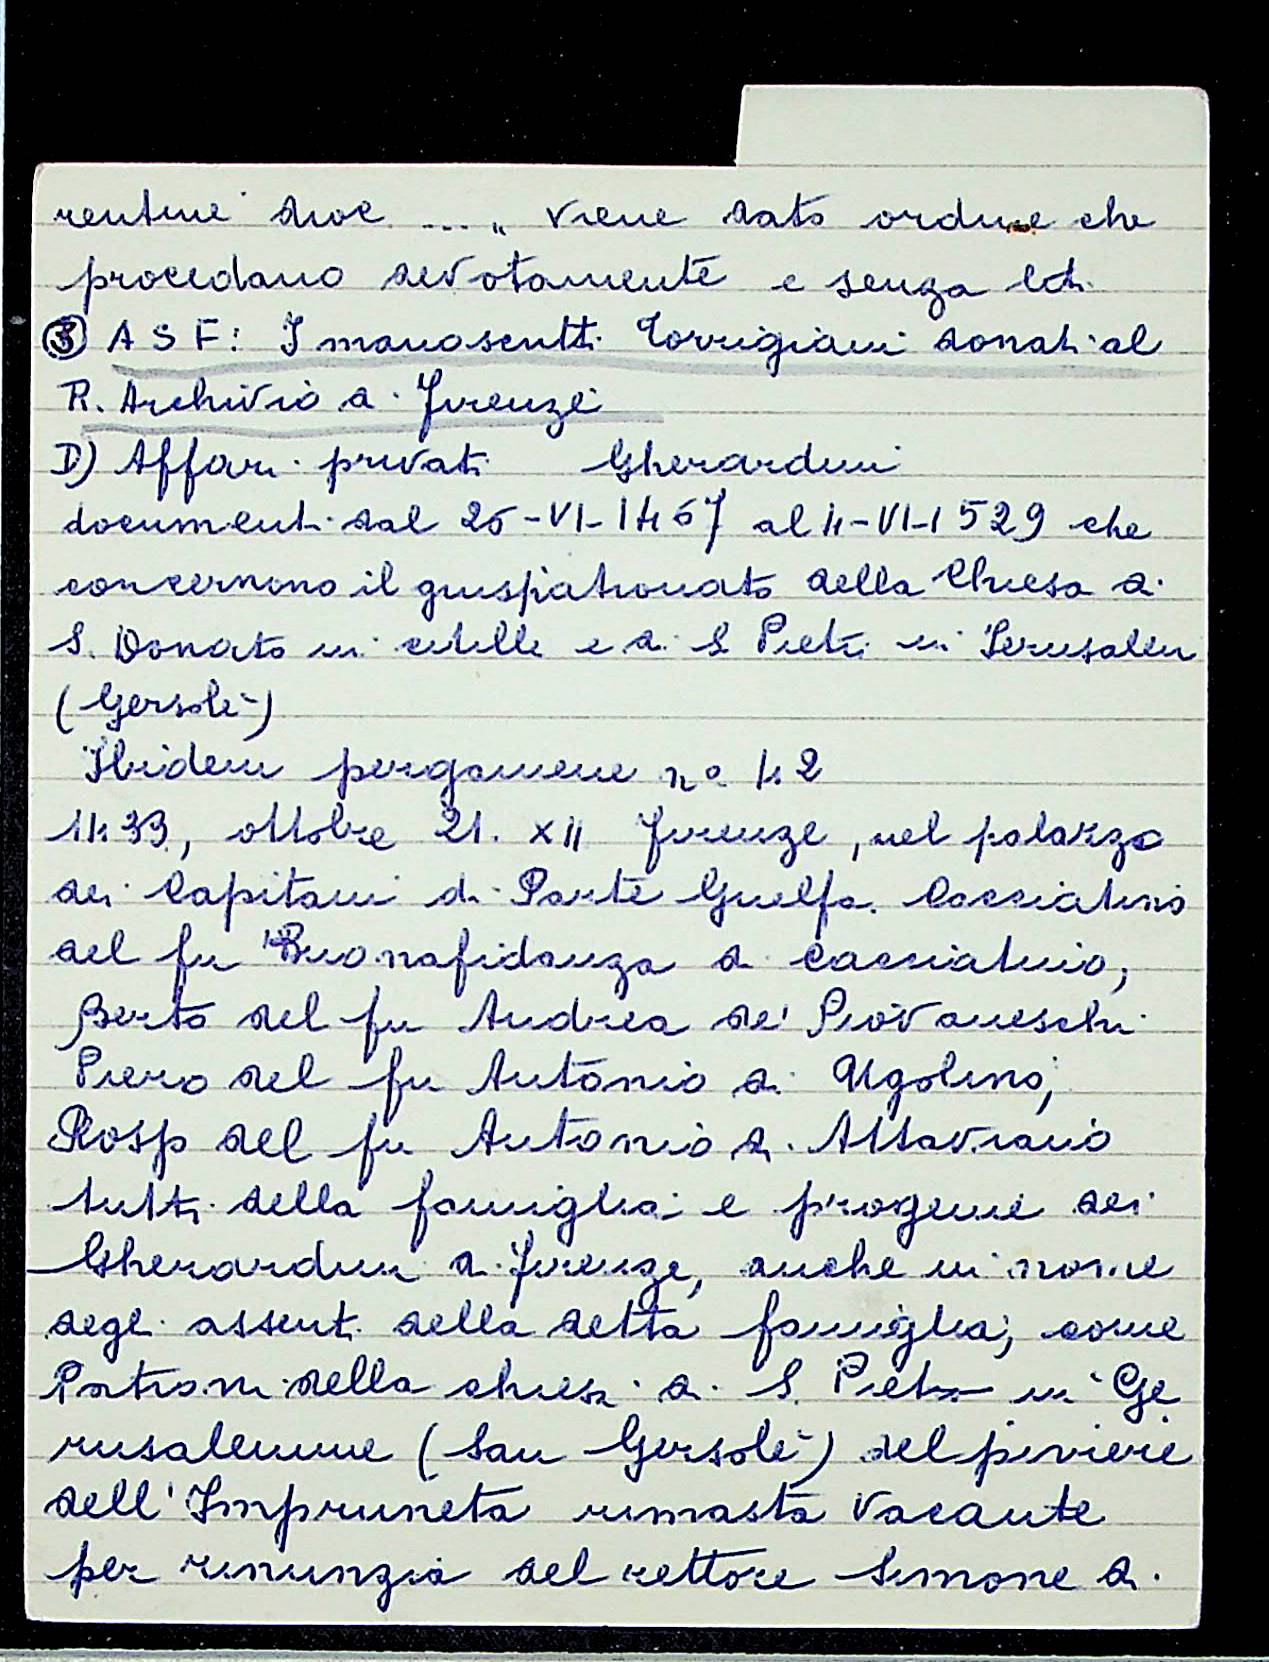 rentine dioc ... „ viene dato ordine che
procedano devotamente e senza liti
③ A S F: I manoscritti Torrigiani donati al
R. Archivio di Firenze
D) Affari privati Gherardini
documenti dal 26-VI-1467 al 4-VI-1529 che
concernono il giuspatronato della Chiesa di
S. Donato in citille e di S Pietro in Jerusalem
(Gersolè)
Ibidem pergamene no 42
1433, ottobre 21. XII Firenze, nel palazzo
dei Capitani di Parte Guelfa. Cacciatino
del fu Buonafidanza di Cacciatino,
Berto del fu Andrea de' Piovaneschi
Piero del fu Antonio di Ugolino,
del fu Antonio di Attaviano
tutti della famiglia e progenie dei
Gherardini di Firenze, anche in nome
degli assenti della detta famiglia, come
Patroni della chiesa di S. Pietro in Ge
rusalemme (San Gersolè) del piviere
dell'Impruneta rimasta vacante
per rinunzia del rettore Simone di